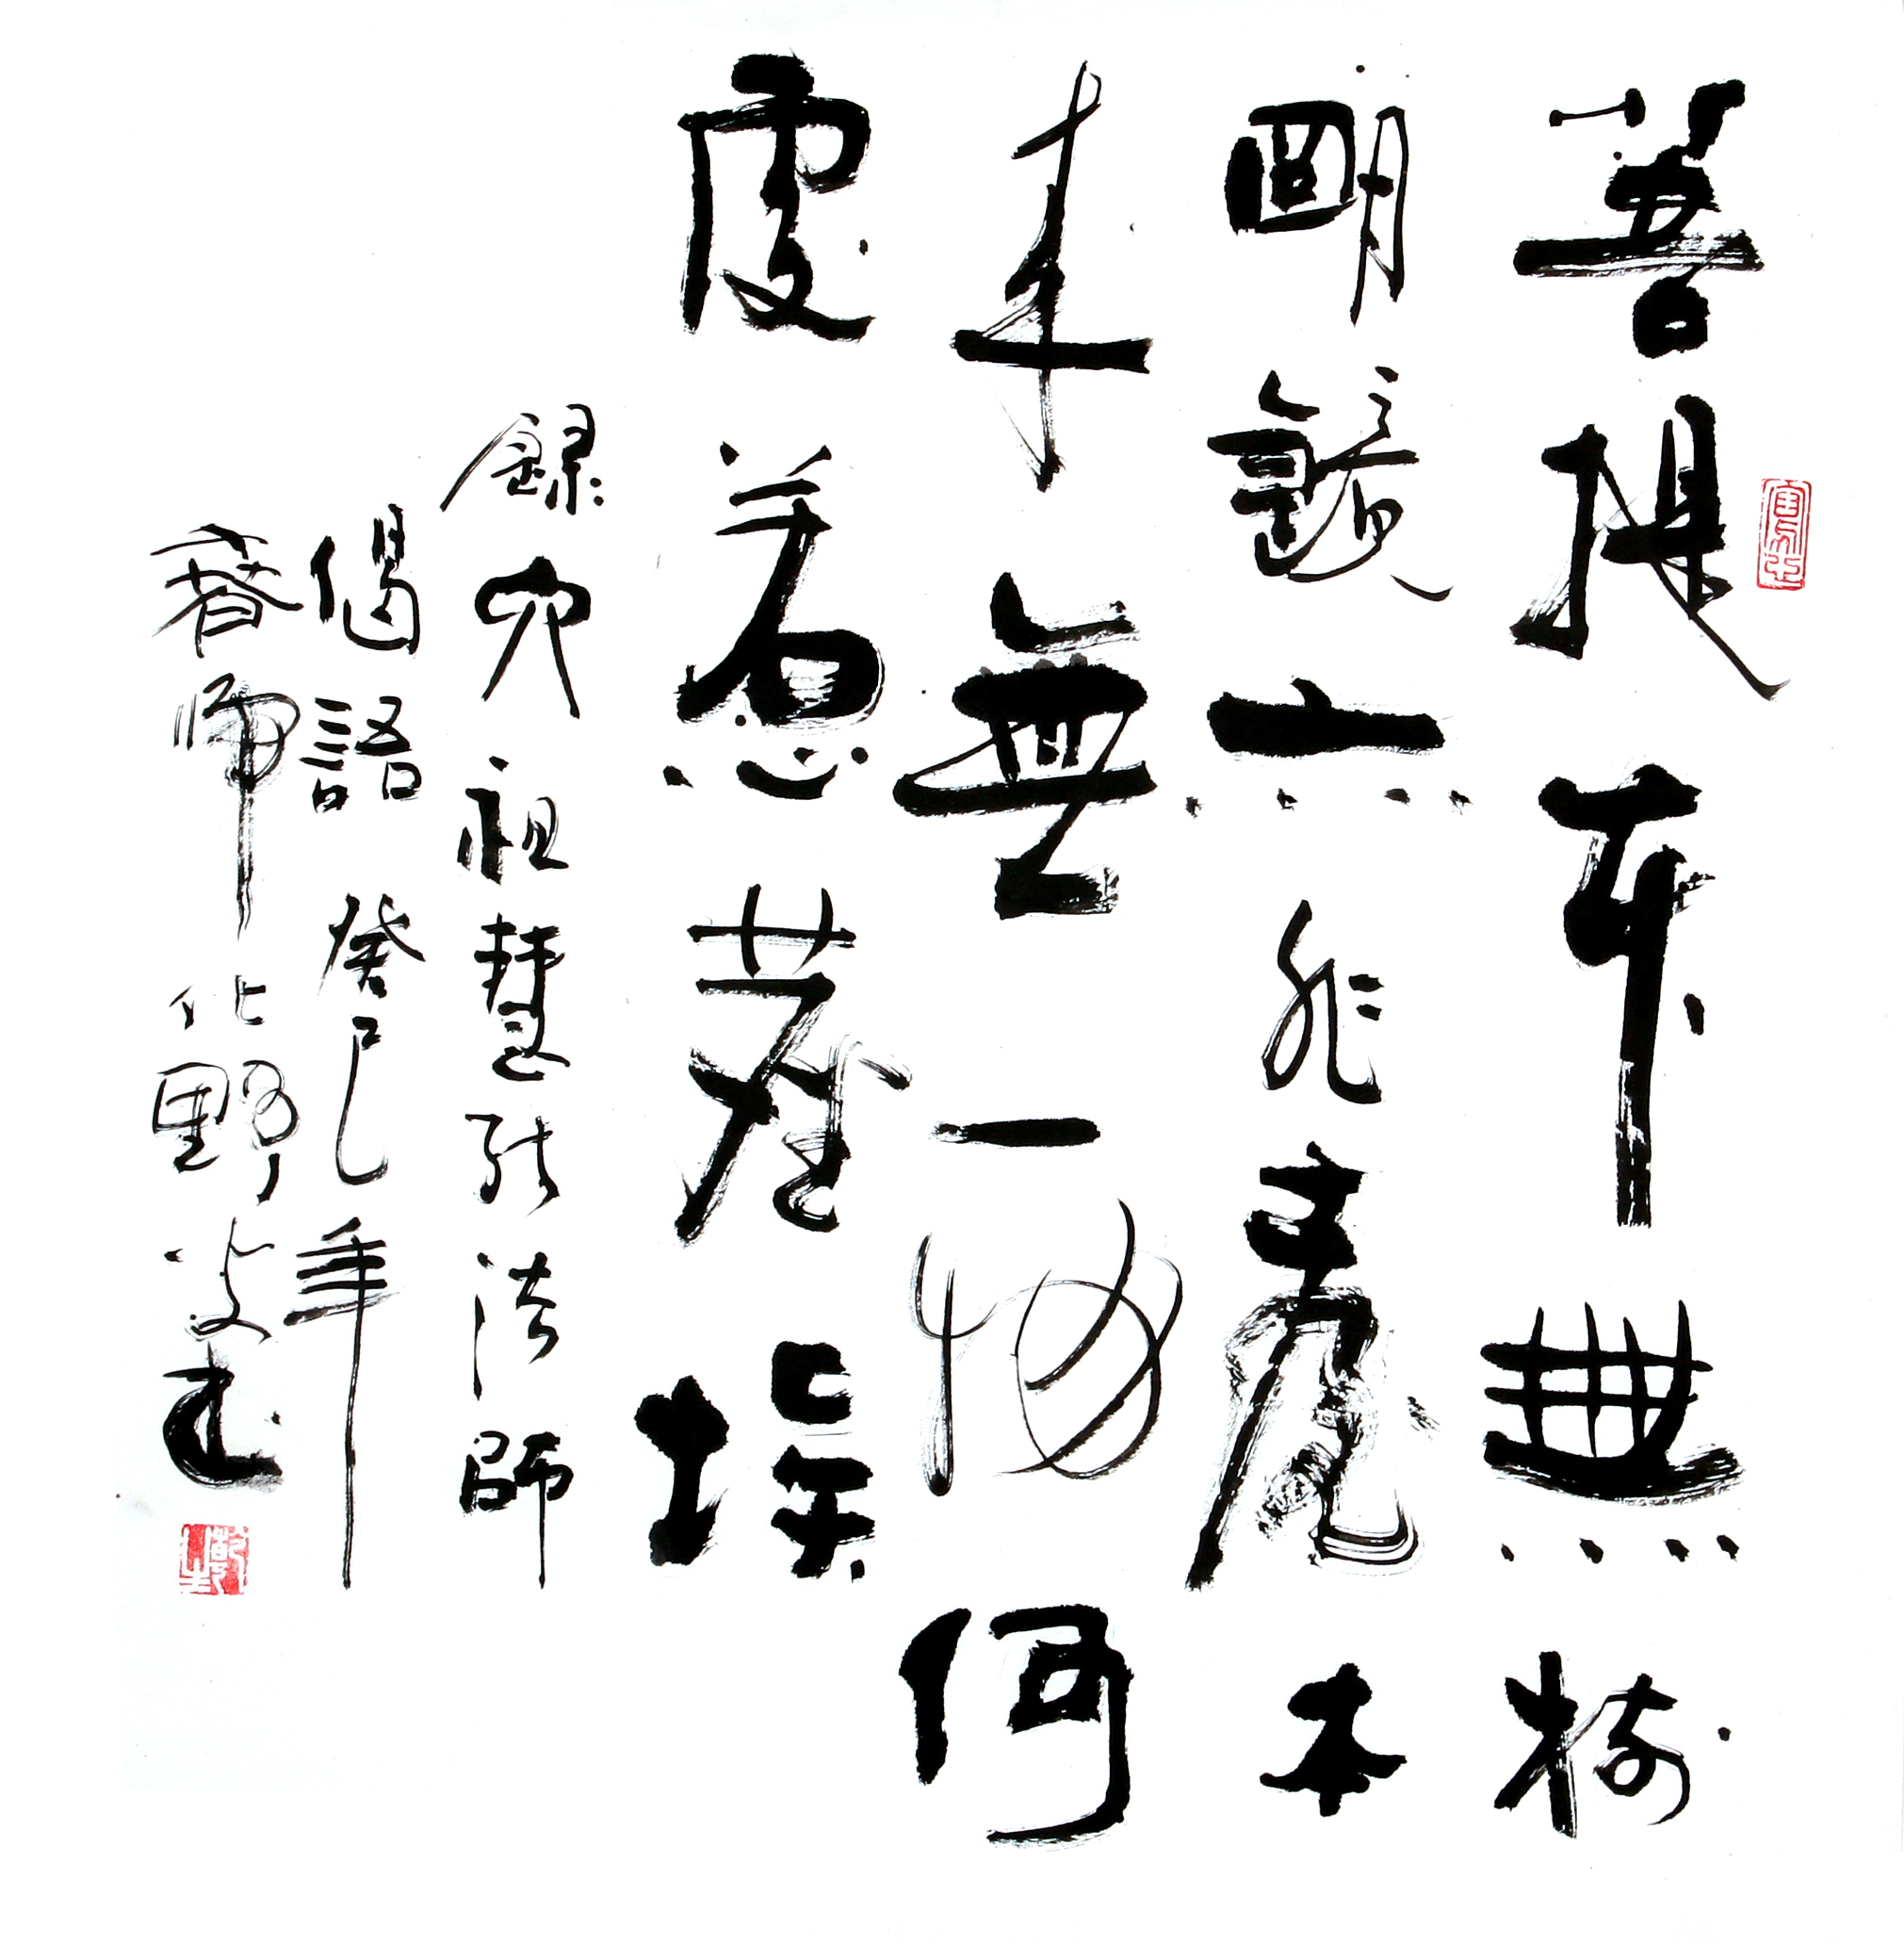 菩提本無樹
明鏡亦非臺本
来無一物何
處惹塵埃
録六祖慧能法師
偈語癸巳年
春 北野